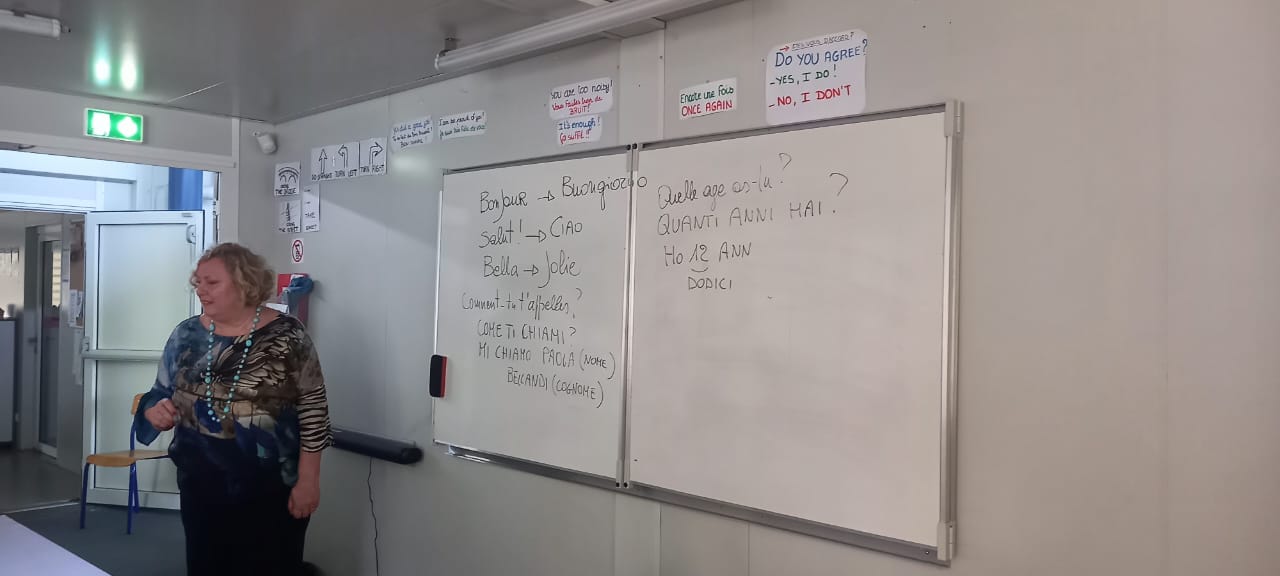 GO STRAIGHT
TURN LEFT
TURN RIGHT
YOU are too noisy!
Vous faites trop de
BRUIT!
It's enough!
Ça suffit!!
Encore une fois
ONCE AGAIN
DO YOU AGREE?
-YES, I DO!
- NO, I DON'T
BonJouR → Buongiorno
Salut! → CIAO
Bella → Jolie
Comment-tu t'appelles?
COME TI CHIAMI?
MI CHIAMO PAOLA (NOME)
BELLANDI (COGNOME)
Quelle age as-tu?
QUANTI ANNI HAI?
Ho 12 ANN
DODICI